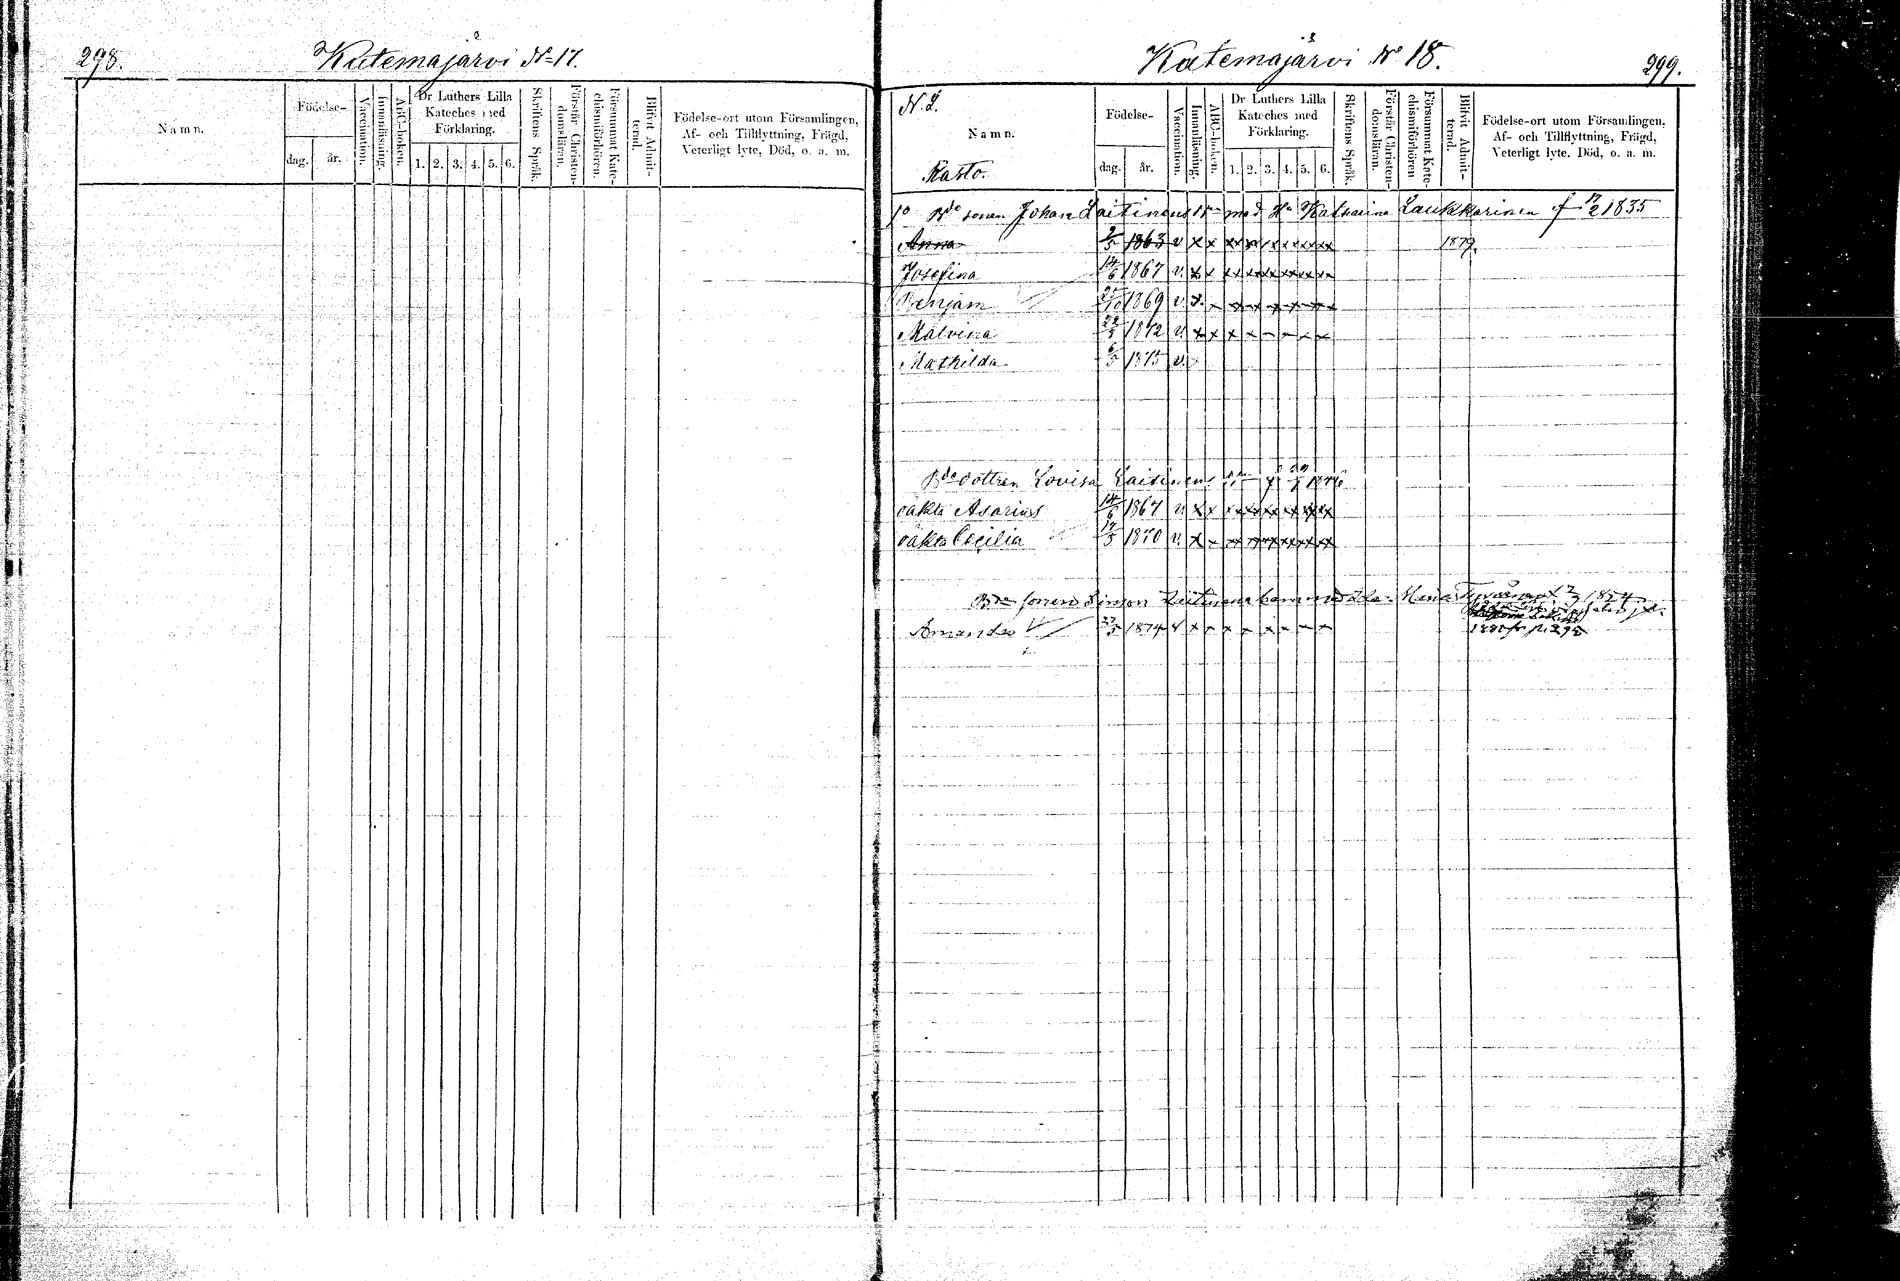 298.
Kutemajärvi Nº 17.
Namn.
Födelse-
dag.
år.
Vaccination.
Innanläsning.
ABC-boken.
Dr Luthers Lilla
Kateches med
Förklaring.
1. 2. 3. 4. 5. 6.
Skriftens Språk.
Förstår Christen-
domsläran.
Försummat Kate-
chismiförhören.
Blifvit Admit-
terad.
Födelse-ort utom Församlingen,
Af- och Tillflyttning, Frägd,
Veterligt lyte, Död, o. a. m.
Kutemajärvi Nº 18.
299.
N. 2.
Namn.
Kasto.
Födelse-
dag.
år.
Vaccination.
Innanläsning.
ABC-boken.
Dr Luthers Lilla
Kateches med
Förklaring.
1. 2. 3. 4. 5. 6.
Skriftens Språk.
Förstår Christen-
domsläran.
Försummat Kate-
chismiförhören
Blifvit Admit-
terad.
Födelse-ort utom Församlingen,
Af- och Tillflyttning, Frägd,
Veterligt lyte, Död, o. a. m.
1º Bde sonen Johan Laitinens med Hu Katharina Laukkarinen f 1835
Anna 2/5 1863 v x x 1879.
Josefina 14/6 1867 v. x x
Benjam 1869 v. x.
Malvina 1872 v. x x x x
Mathilda 6/5 1875 v.
Bde dottren Lovisa Laitinens
oäkta Asarias 14/6 1867 v x x
oäkta Cecilia 1870 v. x
Bde sonen Simon Laitinens barn med
Amanda 1874 v x